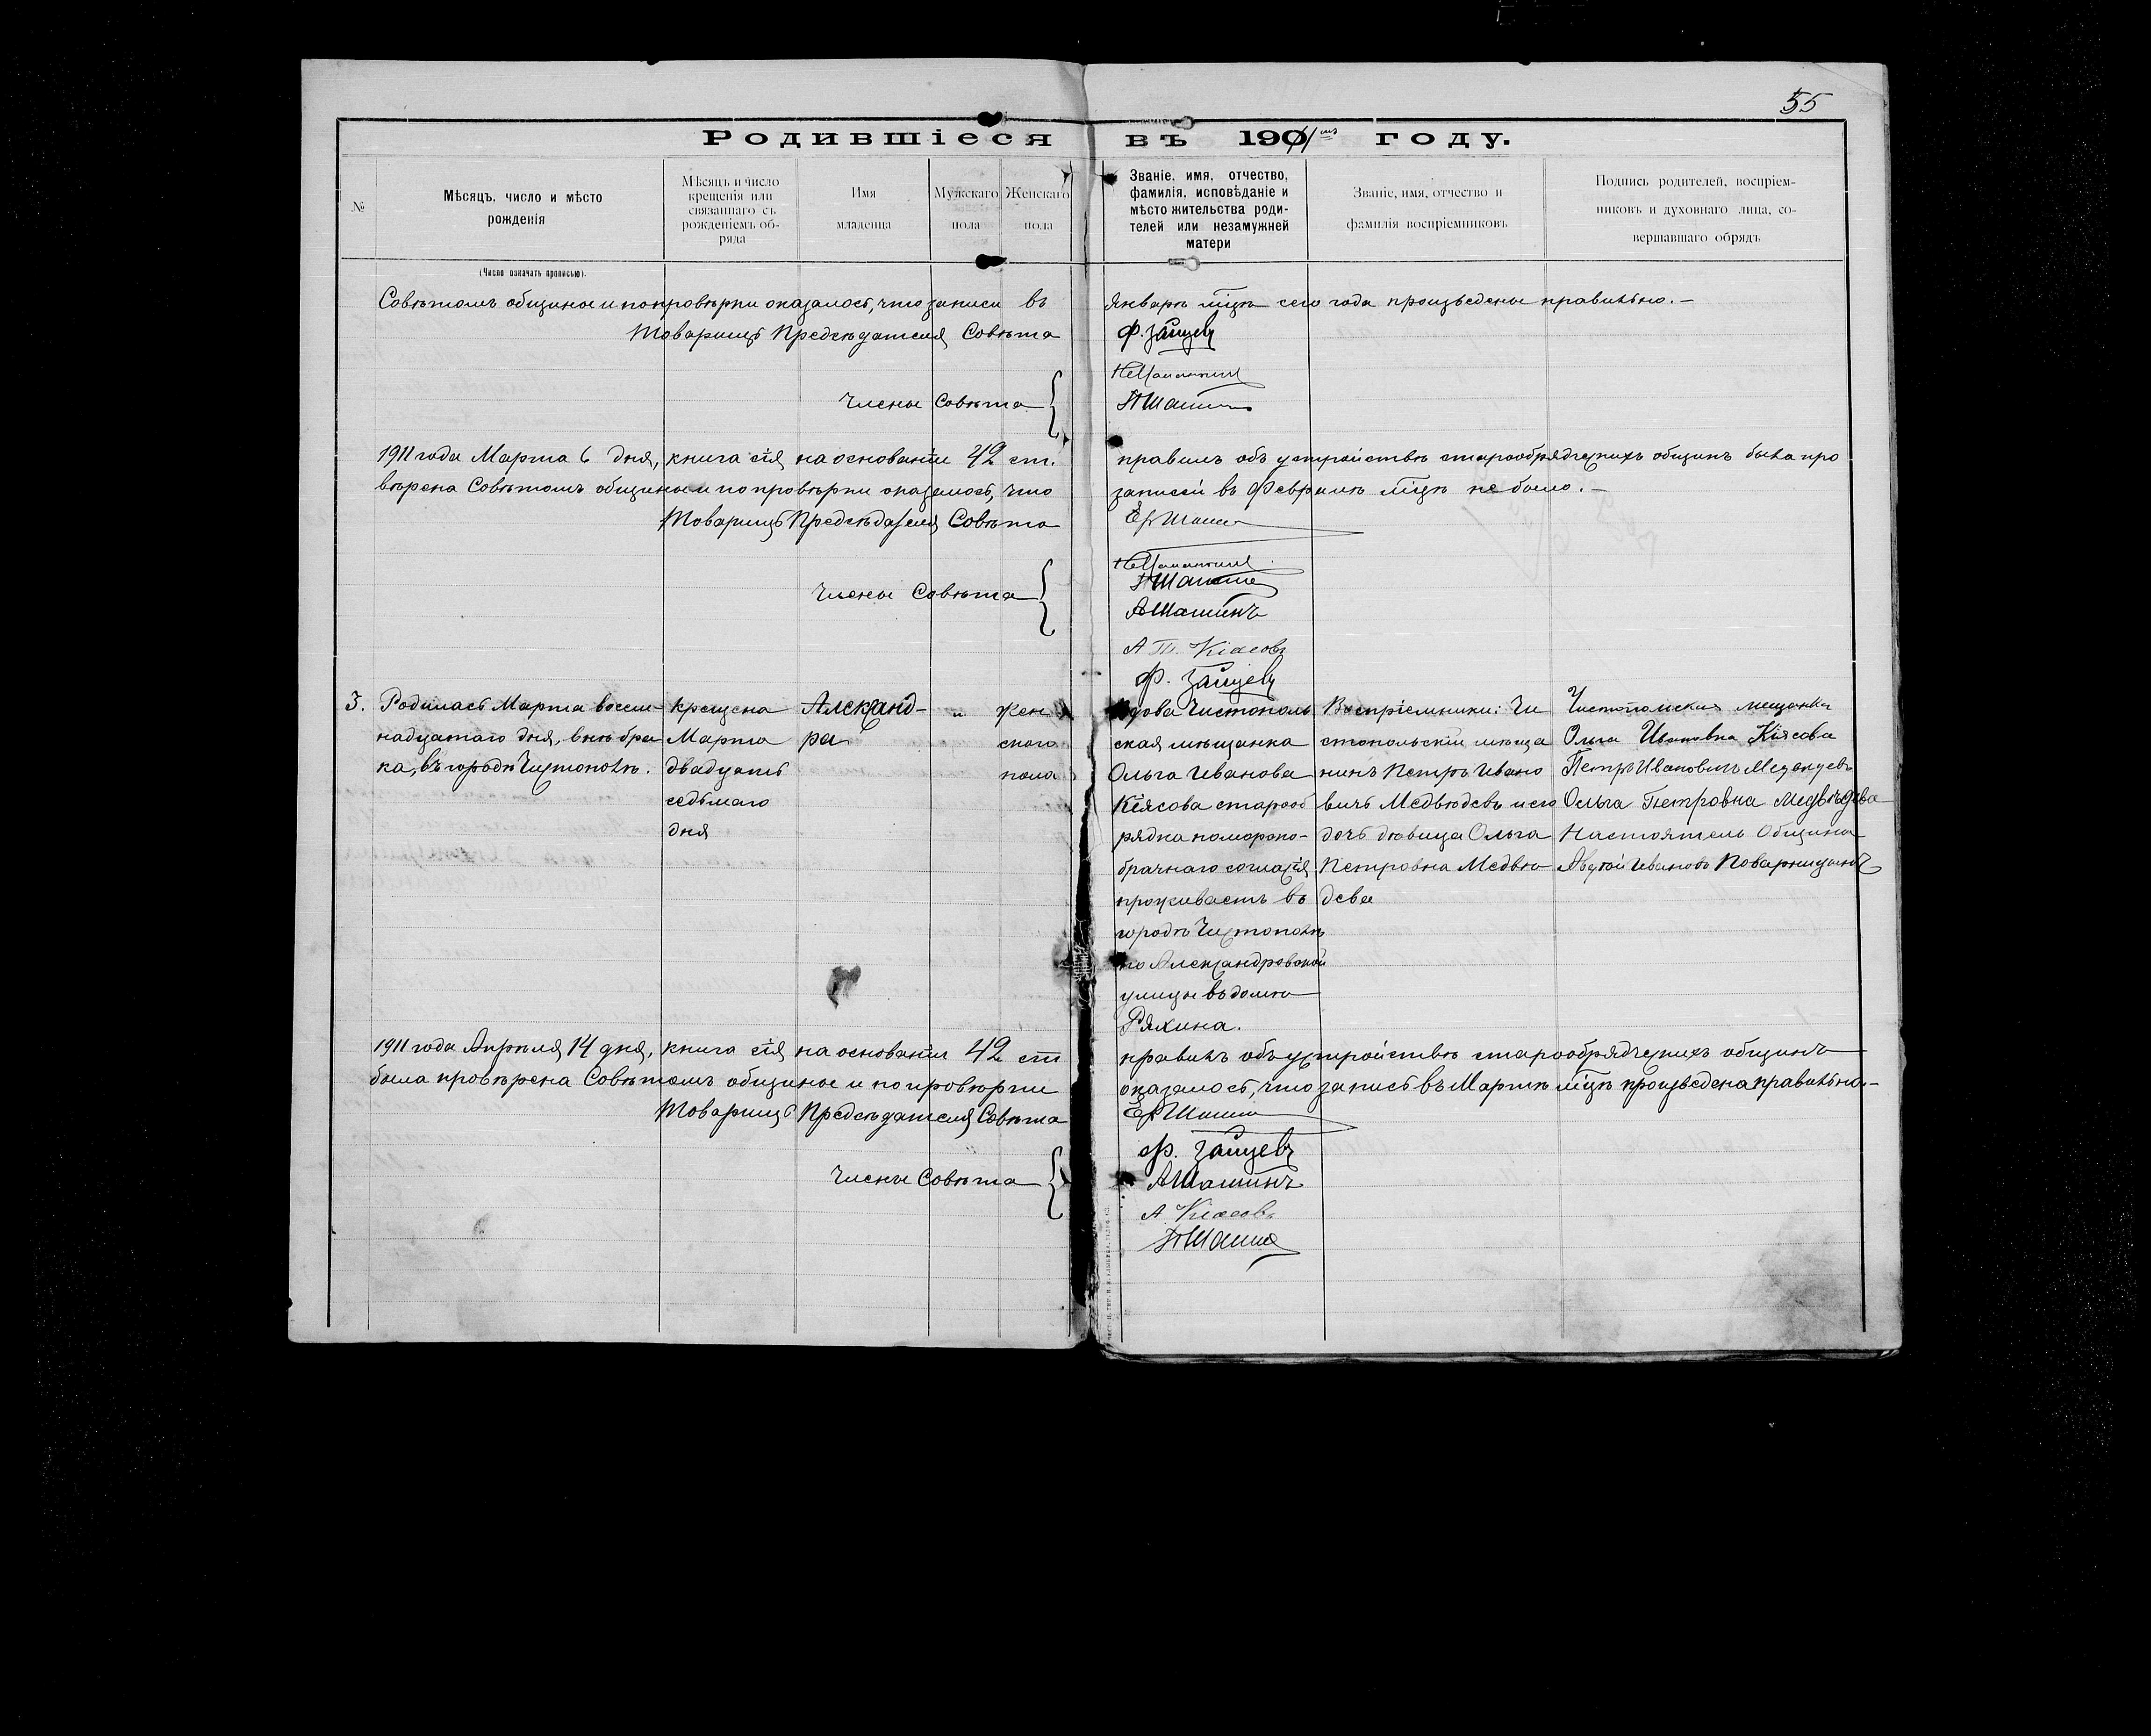 55
Родившіеся въ 1911мъ году.
№
Мѣсяцъ, число и мѣсто
рожденія
Мѣсяцъ и число
крещенія или
связаннаго съ
рожденіемъ об-
ряда
Имя
младенца
Мужскаго
пола
Женскаго
пола
Званіе, имя, отчество,
фамилія, исповѣданіе и
мѣсто жительства роди-
телей или незамужней
матери
Званіе, имя, отчество и
фамилія воспріемниковъ
Подпись родителей, воспріем-
никовъ и духовнаго лица, со-
вершавшаго обрядъ
(Число означать прописью).
Совѣтомъ общины и по провѣрки оказалось, что записи въ Январѣ мцѣ сего года произведены правильно. –
Товарищъ Предсѣдателя Совѣта Ф. Зайцевъ
Члены Совѣта
1911 года Марта 6 дня, книга сія на основаніи 42 ст. правилъ объ устройствѣ старообрядческихъ общинъ была про
вѣрена Совѣтомъ общины и по провѣрки оказалось, что записей въ Февралѣ мцѣ не было. –
Товарищъ Предсѣдателя Совѣта
Члены Совѣта
АШашинъ
Кіясовъ
Ф. Зайцевъ
3.
Родилась Марта восем-
надцатаго дня, внѣ бра
ка, въ городѣ Чистополѣ.
крещена
Марта
двадцать
седьмаго
дня
Александ-
ра
"
Жен
скаго
пола
Вдова Чистополь
ская мѣщанка
Ольга Иванова
Кіясова старооб
рядка поморско-
брачнаго согласія
проживаетъ въ
городѣ Чистополѣ
по Александровской
улицы въ домѣ
Ряхина.
Воспріемники: Чи
стопольскій мѣща
нинъ Петръ Ивано
вичъ Медвѣдевъ и его
дочь дѣвица Ольга
Петровна Медвѣ
дева
Чистопольская мещанка
Ольга Ивановна Кіясова
Петръ Ивановичъ Медведевъ
Ольга Петровна Медвѣдева
Настоятель Общины
Иванов
1911 года Апрѣля 14 дня, книга сія на основаніи 42 ст правилъ объ устройствѣ старообрядческихъ общинъ
была провѣрена Совѣтомъ общины и по провѣрки оказалось, что запись въ Мартѣ мцѣ произведена правильно. –
Товарищъ Предсѣдателя Совѣта
Члены Совѣта
Ф. Зайцевъ
АШашинъ
А Кіясовъ